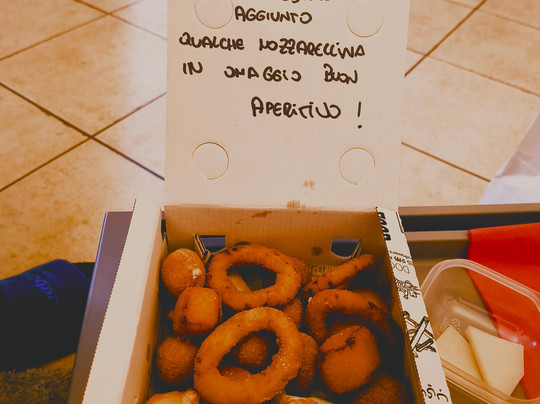 AGGIUNTO
QUALCHE MOZZARELLINA
IN OMAGGIO BUON
APERITIVO !
FOOD